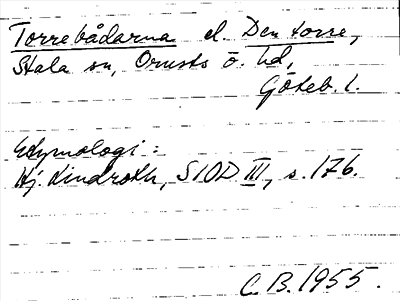 Torrebådarna el. Den torre,
Stala sn, Orusts ö. hd,
Göteb. l.
Etymologi:
Hj. Lindroth, SIOD III, s. 176.
C. B. 1955.